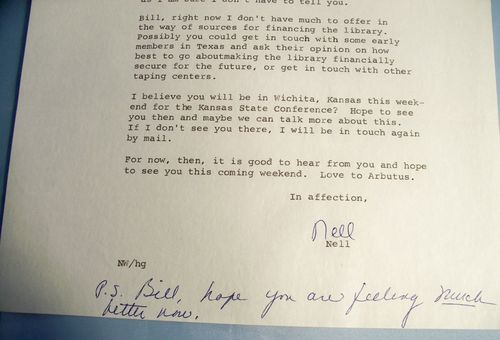 as I am sure I don't have to tell you.
Bill, right now I don't have much to offer in
the way of sources for financing the library.
Possibly you could get in touch with some early
members in Texas and ask their opinion on how
best to go aboutmaking the library financially
secure for the future, or get in touch with other
taping centers.
I believe you will be in Wichita, Kansas this week-
end for the Kansas State Conference? Hope to see
you then and maybe we can talk more about this.
If I don't see you there, I will be in touch again
by mail.
For now, then, it is good to hear from you and hope
to see you this coming weekend. Love to Arbutus.
In affection,
Nell
Nell
NW/hg
P.S. Bill, hope you are feeling much
better now.